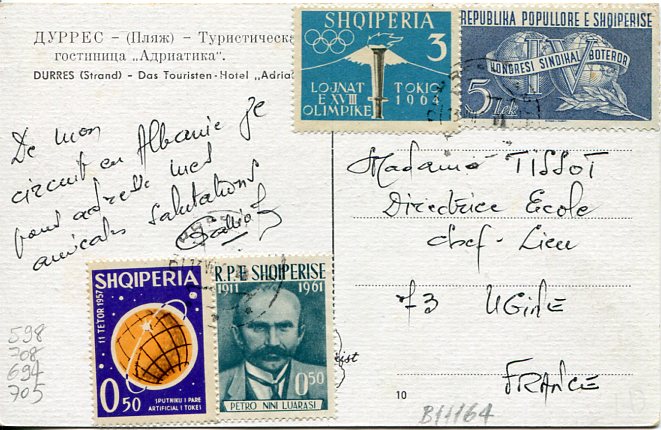 ДУРРЕС – (Пляж) – Туристическа
гостиница "Адриатика".
DURRES (Strand) – Das Touristen-Hotel „Adria
De mon
circuit en Albanie je
vous adresse mes
amicales salutations
SHQIPERIA
3
LOJNAT
E XVIII
OLIMPIKE
TOKIO
1964
REPUBLIKA POPULLORE E SHQIPERISE
KONGRESI SINDIKAL BOTEROR
IV
5 Lek
Madame TISSOT
Directrice Ecole
Chef-Lieu
73 UGINE
FRANCE
SHQIPERIA
11 TETOR 1957
0 50
SPUTNIKU I PARE
ARTIFICIAL I TOKES
R.P.E SHQIPERISE
1911 1961
0.50
PETRO NINI LUARASI
598
708
694
705
ist
10
B11164